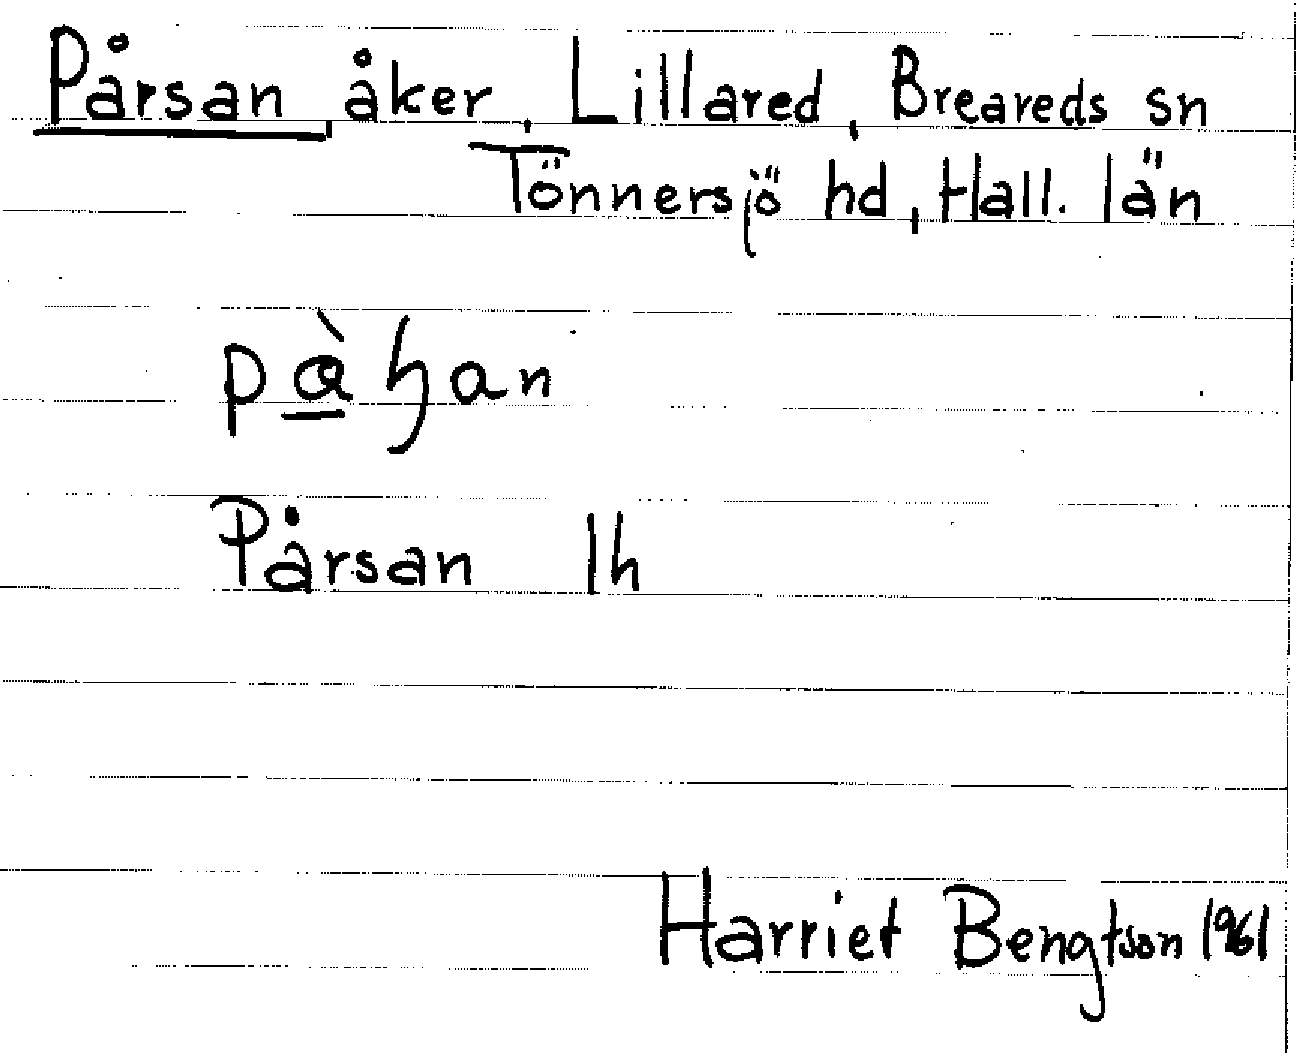 Pårsan, åker, Lillared, Breareds sn
Tönnersjö hd, Hall. län
pɑ̀ɧan
Pårsan lh
Harriet Bengtson 1961